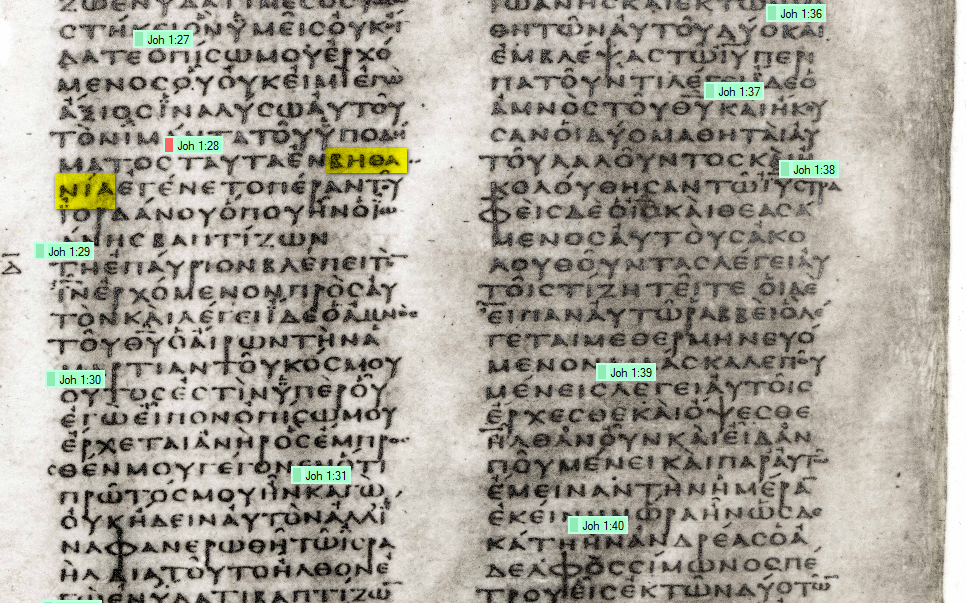 ΖΩΕΝΥΔΑΤΙΜΕCΟCΥ
CΤΗΚΕΙΟΝΥΜΕΙCΟΥΚΟΙ
Joh 1:27
ΔΑΤΕΟΠΙCΩΜΟΥΕΡΧΟ
ΜΕΝΟCΟΥΟΥΚΕΙΜΙΕΓΩ
ΑΞΙΟCΙΝΑΛΥCΩΑΥΤΟΥ
ΤΟΝΙΜΑΝΤΑΤΟΥΥΠΟΔΗ
Joh 1:28
ΜΑΤΟCΤΑΥΤΑΕΝΒΗΘΑ
ΝΙΑΕΓΕΝΕΤΟΠΕΡΑΝΤΟΥ
ΙΟΡΔΑΝΟΥΟΠΟΥΗΝΟΙΩ
ΑΝΗCΒΑΠΤΙΖΩΝ
Joh 1:29
ΤΗΕΠΑΥΡΙΟΝΒΛΕΠΕΙΤΟ
ΙΝΕΡΧΟΜΕΝΟΝΠΡΟCΑΥ
ΤΟΝΚΑΙΛΕΓΕΙΙΔΕΟΑΜΝΟC
ΤΟΥΘΥΟΑΙΡΩΝΤΗΝΑ
ΜΑΡΤΙΑΝΤΟΥΚΟCΜΟΥ
Joh 1:30
ΟΥΤΟCΕCΤΙΝΥΠΕΡΟΥ
ΕΓΩΕΙΠΟΝΟΠΙCΩΜΟΥ
ΕΡΧΕΤΑΙΑΝΗΡΟCΕΜΠΡΟ
CΘΕΝΜΟΥΓΕΓΟΝΕΝΟΤΙ
Joh 1:31
ΠΡΩΤΟCΜΟΥΗΝΚΑΓΩ
ΟΥΚΗΔΕΙΝΑΥΤΟΝΑΛΛΙ
ΝΑΦΑΝΕΡΩΘΗΤΩΙCΡΑ
ΗΛΔΙΑΤΟΥΤΟΗΛΘΟΝΕ
ΓΩΕΝΥΔΑΤΙΒΑΠΤΙΖΩ
ΙΩΑΝΗCΚΑΙΕΚΤΩ
Joh 1:36
ΘΗΤΩΝΑΥΤΟΥΔΥΟΚΑΙ
ΕΜΒΛΕΨΑCΤΩΙΥΠΕΡΙ
ΠΑΤΟΥΝΤΙΛΕΓΕΙΙΔΕΟ
Joh 1:37
ΑΜΝΟCΤΟΥΘΥΚΑΙΗΚΟΥ
CΑΝΟΙΔΥΟΜΑΘΗΤΑΙΑΥ
ΤΟΥΛΑΛΟΥΝΤΟCΚΑΙ
Joh 1:38
ΚΟΛΟΥΘΗCΑΝΤΩΙΥCΤΡΑ
ΦΕΙCΔΕΟΙCΚΑΙΘΕΑCΑ
ΜΕΝΟCΑΥΤΟΥCΑΚΟ
ΛΟΥΘΟΥΝΤΑCΛΕΓΕΙΑΥ
ΤΟΙCΤΙΖΗΤΕΙΤΕΟΙΔΕ
ΕΙΠΑΝΑΥΤΩΡΑΒΒΕΙΟΛΕ
ΓΕΤΑΙΜΕΘΕΡΜΗΝΕΥΟ
ΜΕΝΟΝΔΙΔΑCΚΑΛΕΠΟΥ
Joh 1:39
ΜΕΝΕΙCΛΕΓΕΙΑΥΤΟΙC
ΕΡΧΕCΘΕΚΑΙΟΨΕCΘΕ
ΗΛΘΑΝΟΥΝΚΑΙΕΙΔΑΝ
ΠΟΥΜΕΝΕΙΚΑΙΠΑΡΑΥΤΩ
ΕΜΕΙΝΑΝΤΗΝΗΜΕΡΑ
ΕΚΕΙΝΗΝΩΡΑΗΝΩCΔΕ
Joh 1:40
ΚΑΤΗΗΝΑΝΔΡΕΑCΟΑ
ΔΕΛΦΟCCΙΜΩΝΟCΠΕ
ΤΡΟΥΕΙCΕΚΤΩΝΔΥΟΤΩ